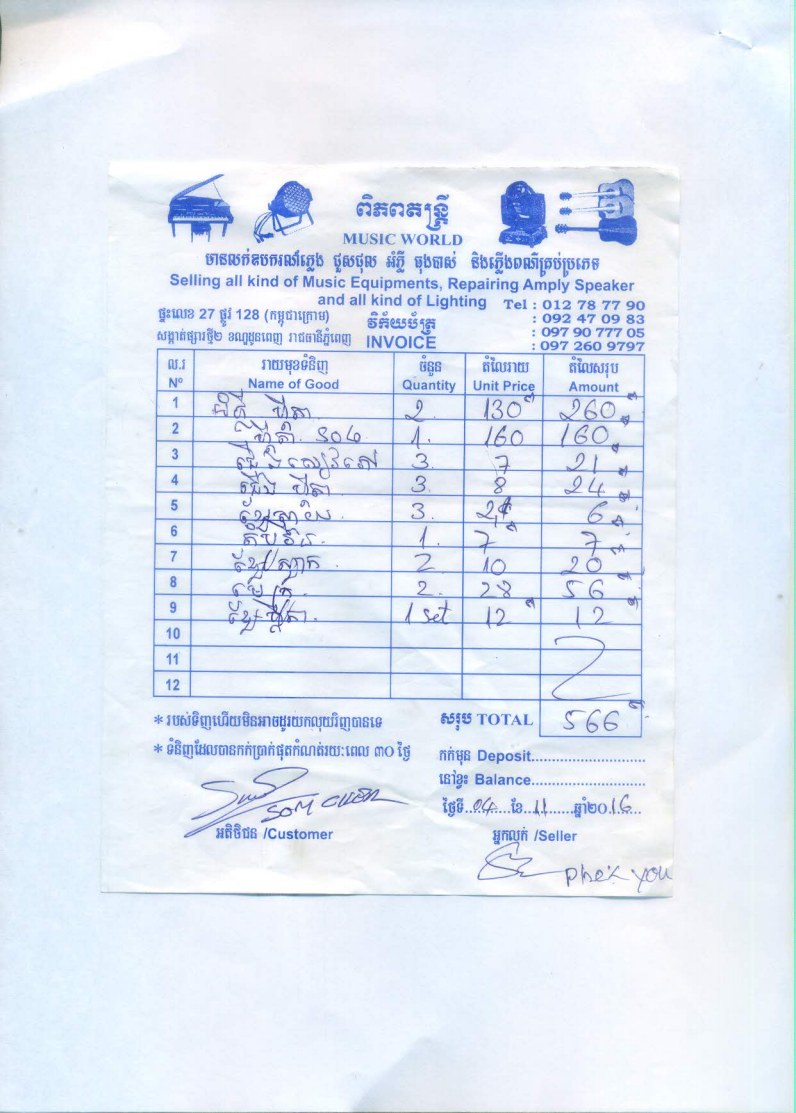 ពិភពតន្ត្រី
MUSIC WORLD
មានលក់ឧបករណ៍ភ្លេង ជួសជុល អំភ្លី ធុងបាស់ និងភ្លើងពណ៌គ្រប់ប្រភេទ
Selling all kind of Music Equipments, Repairing Amply Speaker
and all kind of Lighting Tel : 012 78 77 90
ផ្ទះលេខ 27 ផ្លូវ 128 (កម្ពុជាក្រោម) វិក័យប័ត្រ : 092 47 09 83
សង្កាត់ផ្សារថ្មី២ ខណ្ឌដូនពេញ រាជធានីភ្នំពេញ INVOICE : 097 90 777 05
: 097 260 9797
ល.រ រាយមុខទំនិញ ចំនួន តំលៃរាយ តំលៃសរុប
Nº Name of Good Quantity Unit Price Amount
1 ហ្គីតា 2 130 260
2 1 160 160
3 3 7 21
4 ជើង ហ្គីតា 3 8 24
5 3 2 6
6 1 7 7
7 2 10 20
8 2 28 56
9 ខ្សែ ហ្គីតា 1 set 12 12
10
11
12
*របស់ទិញហើយមិនអាចដូរយកលុយវិញបានទេ សរុប TOTAL 566
*ទំនិញដែលបានកក់ប្រាក់ផុតកំណត់រយៈពេល ៣០ ថ្ងៃ កក់មុន Deposit
នៅខ្វះ Balance
ថ្ងៃទី 04 ខែ 11 ឆ្នាំ២០16
អតិថិជន /Customer អ្នកលក់ /Seller